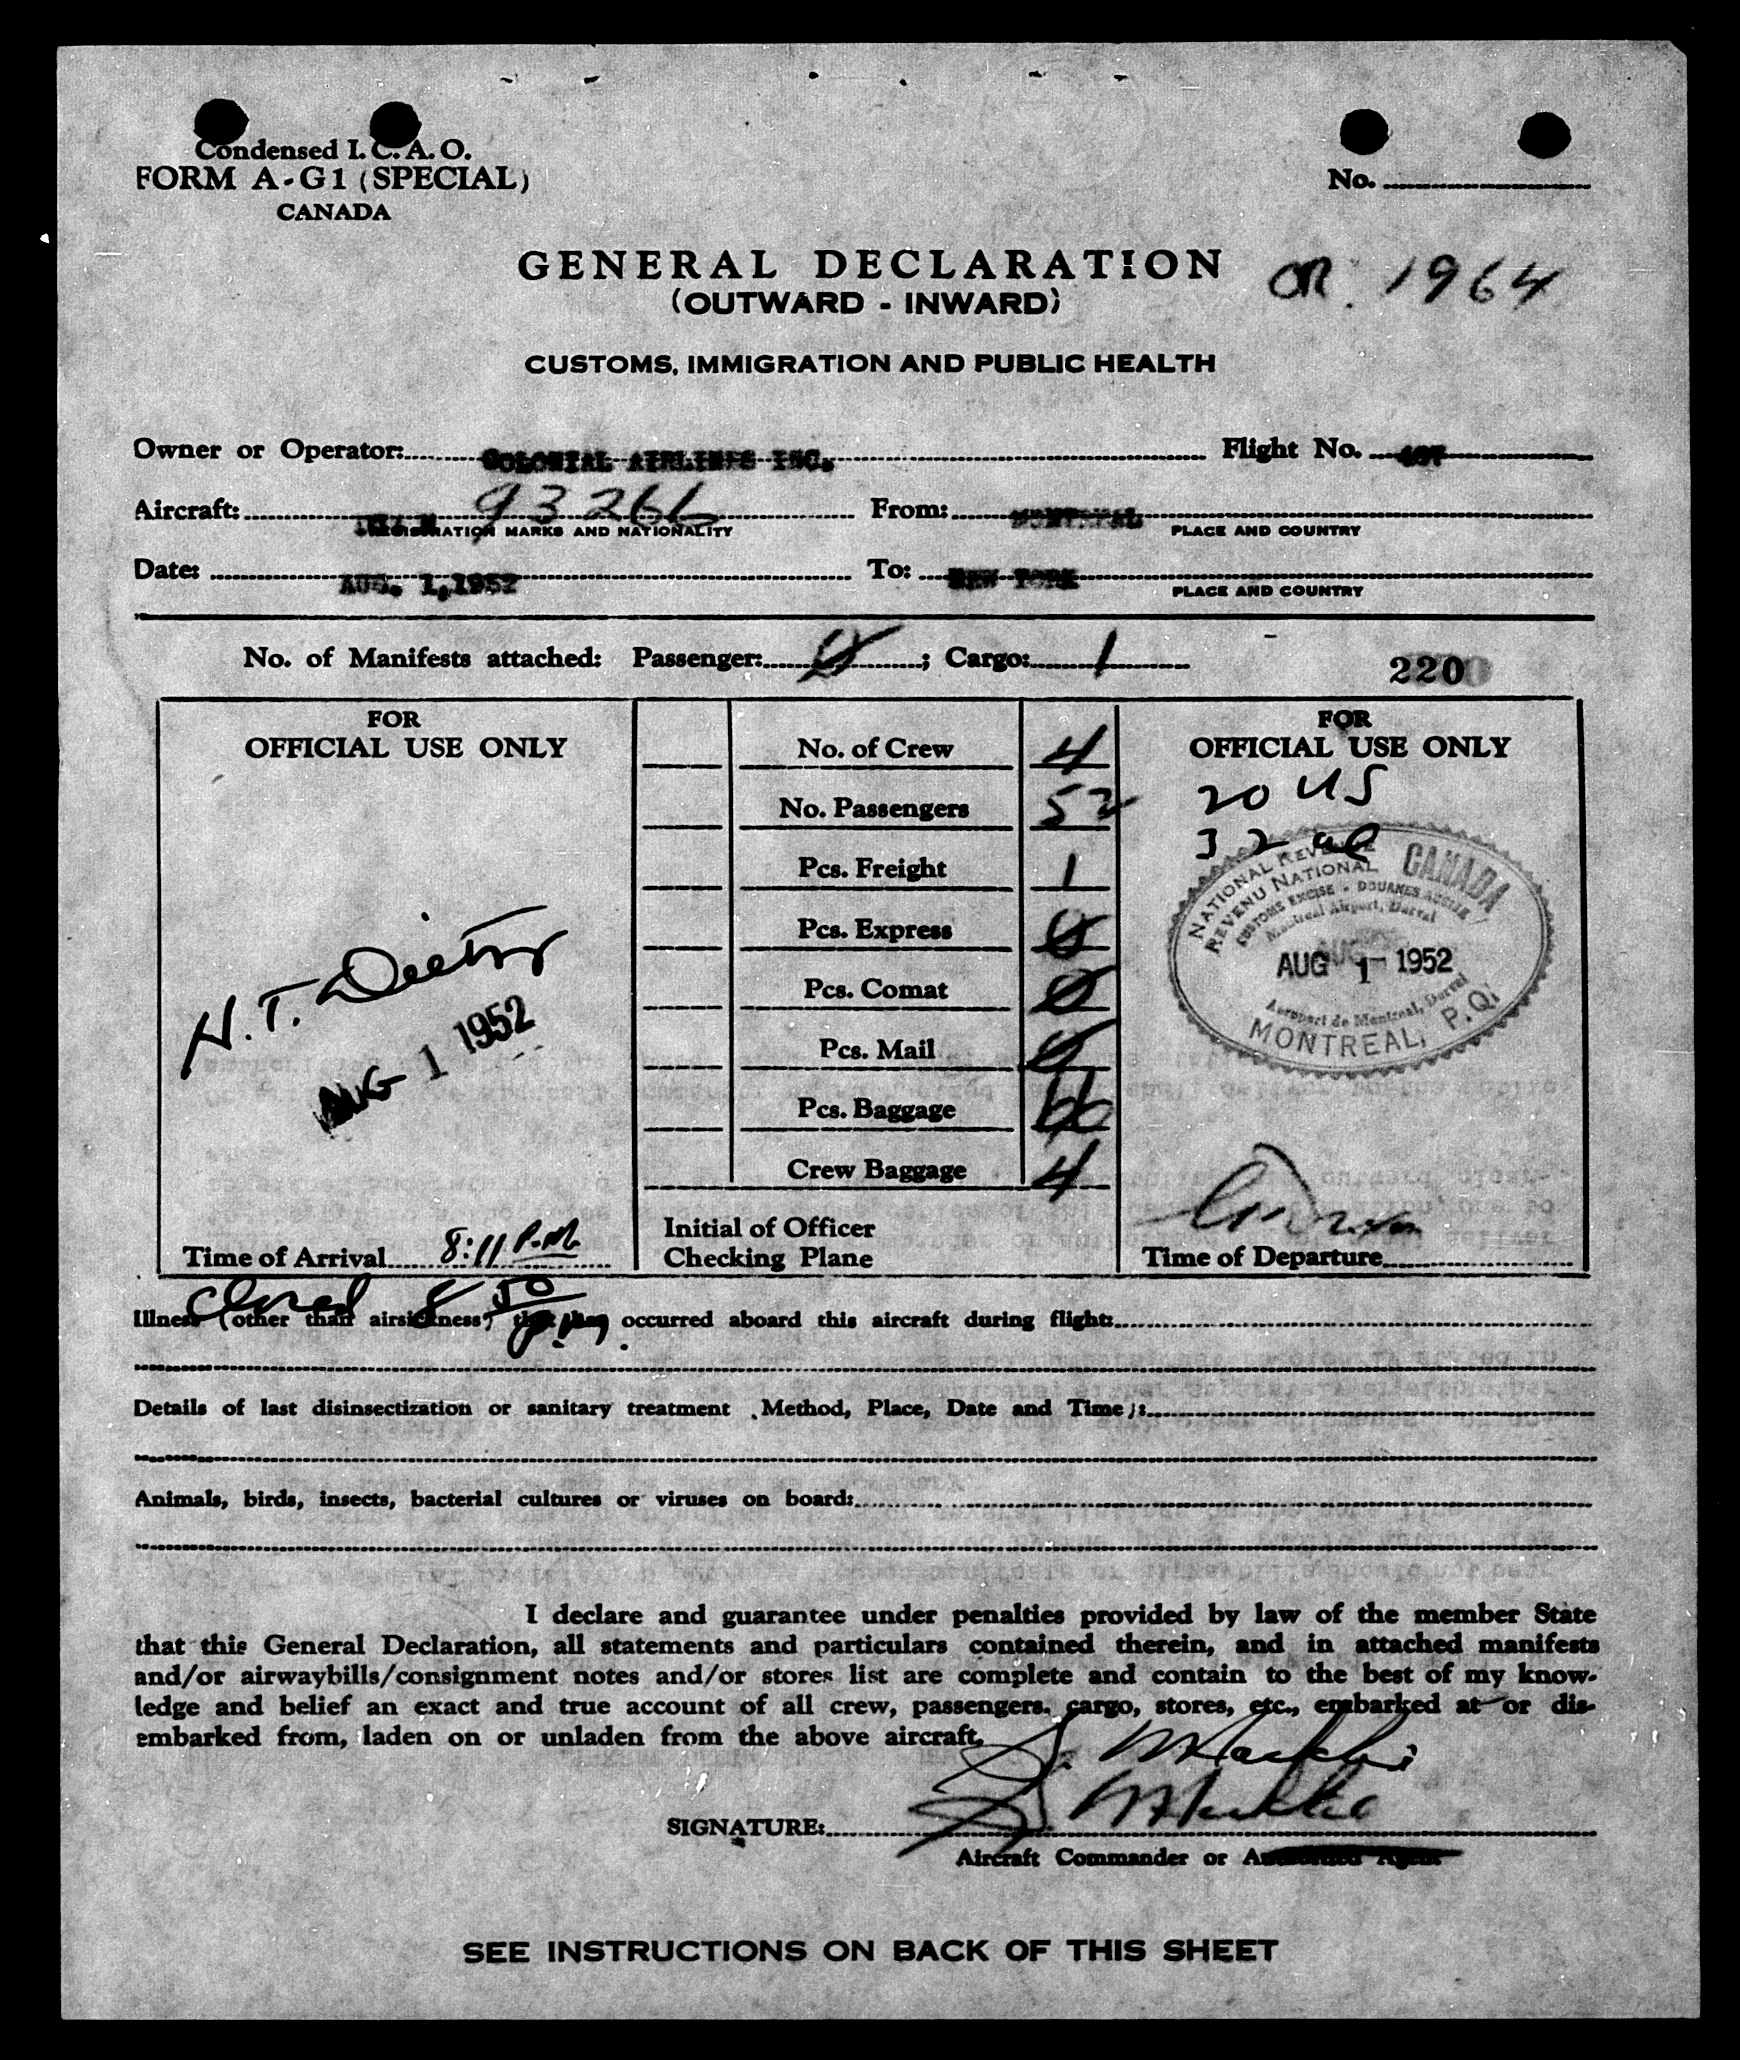 Condensed I. C. A. O.
FORM A-G1 (SPECIAL)
CANADA
No.
GENERAL DECLARATION
OR. 1964
(OUTWARD - INWARD)
CUSTOMS, IMMIGRATION AND PUBLIC HEALTH
Owner or Operator: COLONIAL AIRLINES INC. Flight No.
Aircraft: 93266 From: MONTREAL
REGISTRATION MARKS AND NATIONALITY PLACE AND COUNTRY
Date: AUG. 1,1952 To: NEW YORK
PLACE AND COUNTRY
No. of Manifests attached: Passenger: 0 ; Cargo: 1
220
FOR
OFFICIAL USE ONLY
H. T. Dietz
AUG 1 1952
Time of Arrival 8:11 P.M.
No. of Crew 4
No. Passengers 52
Pcs. Freight 1
Pcs. Express 0
Pcs. Comat 0
Pcs. Mail 0
Pcs. Baggage 66
Crew Baggage 4
Initial of Officer
Checking Plane
FOR
OFFICIAL USE ONLY
20 US
32 al
NATIONAL REVENUE CANADA
REVENU NATIONAL
CUSTOMS EXCISE - DOUANES ACCISE
Montreal Airport, Dorval
AUG 1 1952
Aeroport de Montreal, Dorval
MONTREAL, P.Q.
Time of Departure
Closed 8 50 p.m.
Illness (other than airsickness) occurred aboard this aircraft during flight:
Details of last disinsectization or sanitary treatment (Method, Place, Date and Time):
Animals, birds, insects, bacterial cultures or viruses on board:
I declare and guarantee under penalties provided by law of the member State
that this General Declaration, all statements and particulars contained therein, and in attached manifests
and/or airwaybills/consignment notes and/or stores list are complete and contain to the best of my know-
ledge and belief an exact and true account of all crew, passengers, cargo, stores, etc., embarked at or dis-
embarked from, laden on or unladen from the above aircraft.
SIGNATURE:
Aircraft Commander or Authorized Agent
SEE INSTRUCTIONS ON BACK OF THIS SHEET